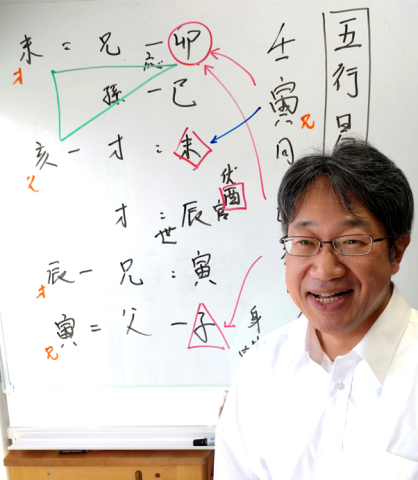 五行
壬寅
兄
未 = 兄 一 卯
才
応
孫 一 巳
亥 一 才 : 未
父
伏
才 : 辰 官 酉
世
辰 一 兄 : 寅
才
寅 = 父 一 子
兄
身